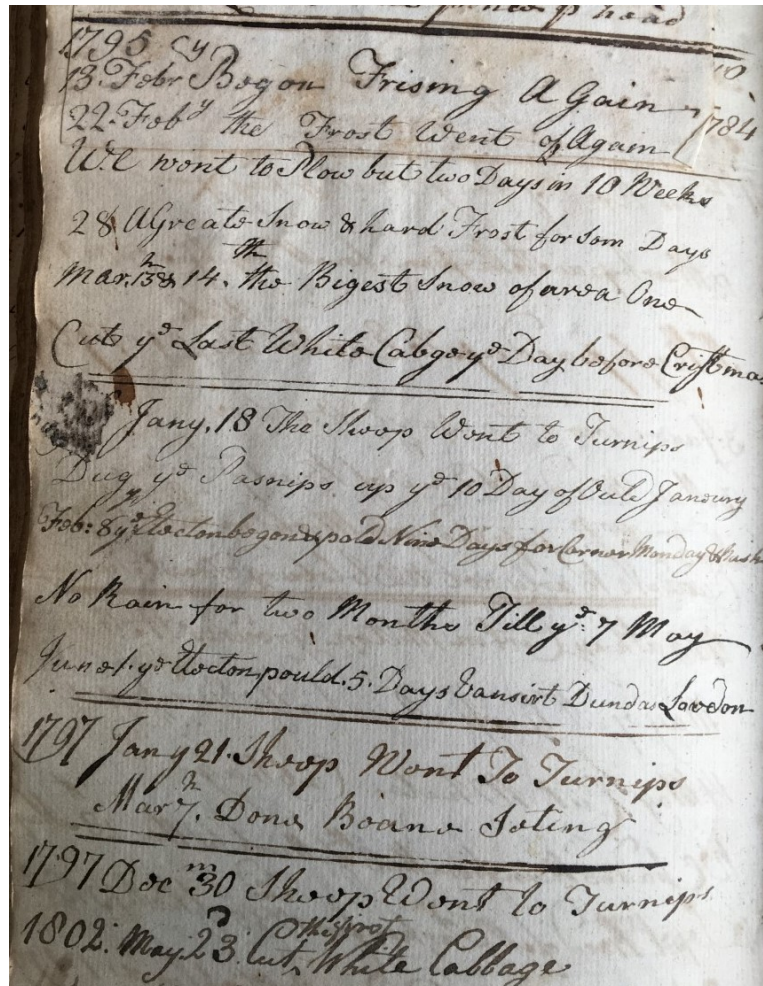 head
1795
13 Febr y Begon Frising AGain
22 Feb y the Frost Went of Again 1784
We went to Plow but two Days in 10 Weeks
28 AGreate Snow & hard Frost for Som Days
Mar. 13 & 14 th the Bigest Snow of area One
Cute ye Last White Cabge ye Day before Cristmas
Jany. 18 The Sheep Went to Turnips
Dug ye Pasnips up ye 10 Day of Ould Janoury
Feb: 8 ye Electon begon & pold Nine Days for Monday &
No Rain for two Months Till ye 7 May
June 1. ye Electon pould. 5. Days Vansirt Dundas Lowdon
1797 Jany 21. Sheep Went To Turnips
Mar 7. h Done Beane Seting
1797 Decm 30 Sheep Went to Turnips
1802. May. 23. Cut the first White Cabbage